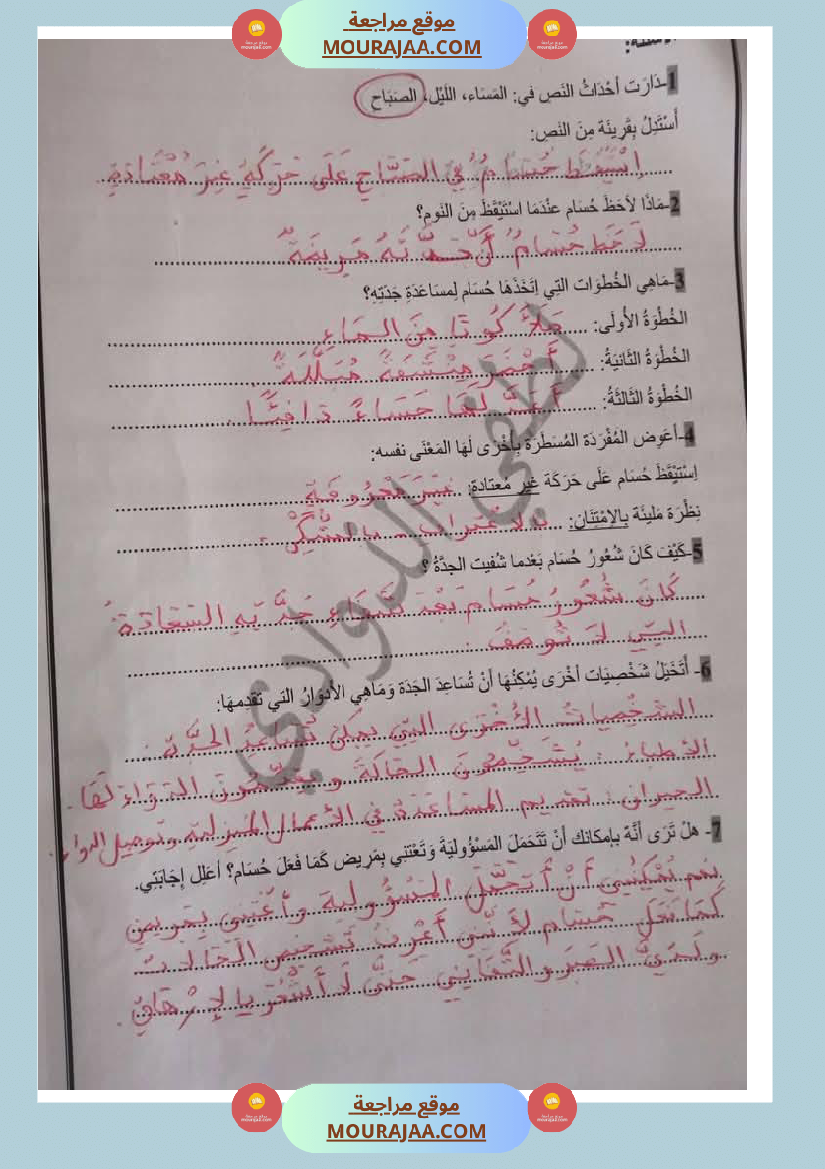 موقع مراجعة
MOURAJAA.COM
الأسئلة:
1-دَارَت أحْدَاثُ النَص في: المَسَاء، اللَيْل، الصَبَاح
أَسْتَدِلُ بِقَرِينَة مِنَ النَص:
إِسْتَيْقَظَ حُسَامٌ فِي الصَّبَاحِ عَلَى حَرَكَةٍ غَيْرَ مُعْتَادَةٍ.
2-مَاذَا لاَحَظَ حُسَام عنْدَمَا اسْتَيْقَظَ مِنَ النَوم؟
لاَحَظَ حُسَامٌ أَنَّ جَدَّتَهُ مَرِيضَةٌ
3-مَاهِي الخُطُوَات التِي اِتَخَذَهَا حُسَام لِمسَاعَدَةِ جَدَتِهِ؟
الخُطْوَةُ الأُولَى: مَلَأَ كُوبًا مِنَ المَاءِ
الخُطْوَةُ الثَانِيَةُ: أَحْضَرَ مِنْشَفَةً مُبَلَّلَةً
الخُطْوَةُ الثَالثَةُ: أَعَدَّ لَهَا حَسَاءً دَافِئًا.
4-أعَوِض المُفْرَدَة المُسَطَرَة بِأُخْرَى لَهَا المَعْنَى نفسه:
اِسْتَيْقَظَ حُسَام عَلَى حَرَكَة غَيرِ مُعتادة: غَيْرَ مَعْرُوفَةٍ
نِظْرَة مَلِيئَة بِالاِمْتِنَانِ: بالاعْتِرَافِ - بِالشُّكْرِ.
5-كَيْفَ كَانَ شُعُورُ حُسَام بَعْدما شُفيت الجدَّةُ ؟
كَانَ شُعُورُ حُسَام بَعْدَ شِفَاءِ جَدَّتِهِ السَّعَادَةُ
التِي لاَ تُوصَفُ.
6- أَتَخَيَلُ شَخْصِيَات أخْرَى يُمْكِنُهَا أَنْ تُسَاعِدَ الجَدَة وَمَاهِي الأَدوَارُ التي تقَدِمهَا:
الشخصياتُ الأُخْرَى التِي يمكن تُسَاعِدُ الجَدَّة:
الأطباء: يُشَخِّصُونَ الحَالَةَ ويُقَدِّمُونَ الدَّوَاءَ لَهَا.
الجيران: تقديم المسَاعَدَة في الأعمال المنزلية وتوصيل الدواء.
7- هلْ تَرَى أنَّهُ بإمكانك أنْ تَتَحَمَلَ المَسْؤُوليَةَ وَتَعْتَنِي بِمَرِيض كَمَا فَعَلَ حُسَام؟ أعَلِل إِجَابَتِي.
نعم يُمْكِنُنِي أَنْ أَتَحَمَّلَ المَسْؤُولِيةَ وأَعْتَنِي بِمَرِيضٍ
كَمَا فَعَلَ حُسَام لأَنَّنِي أَعْرِفُ تَشخيص الحَالَات
ولَدَيَّ الصَبْرَ والتَّفَانِي حَتَّى لاَ أَشْعُرَ بِالإِرْهَاقِ.
لطفي الذوادي
موقع مراجعة
MOURAJAA.COM